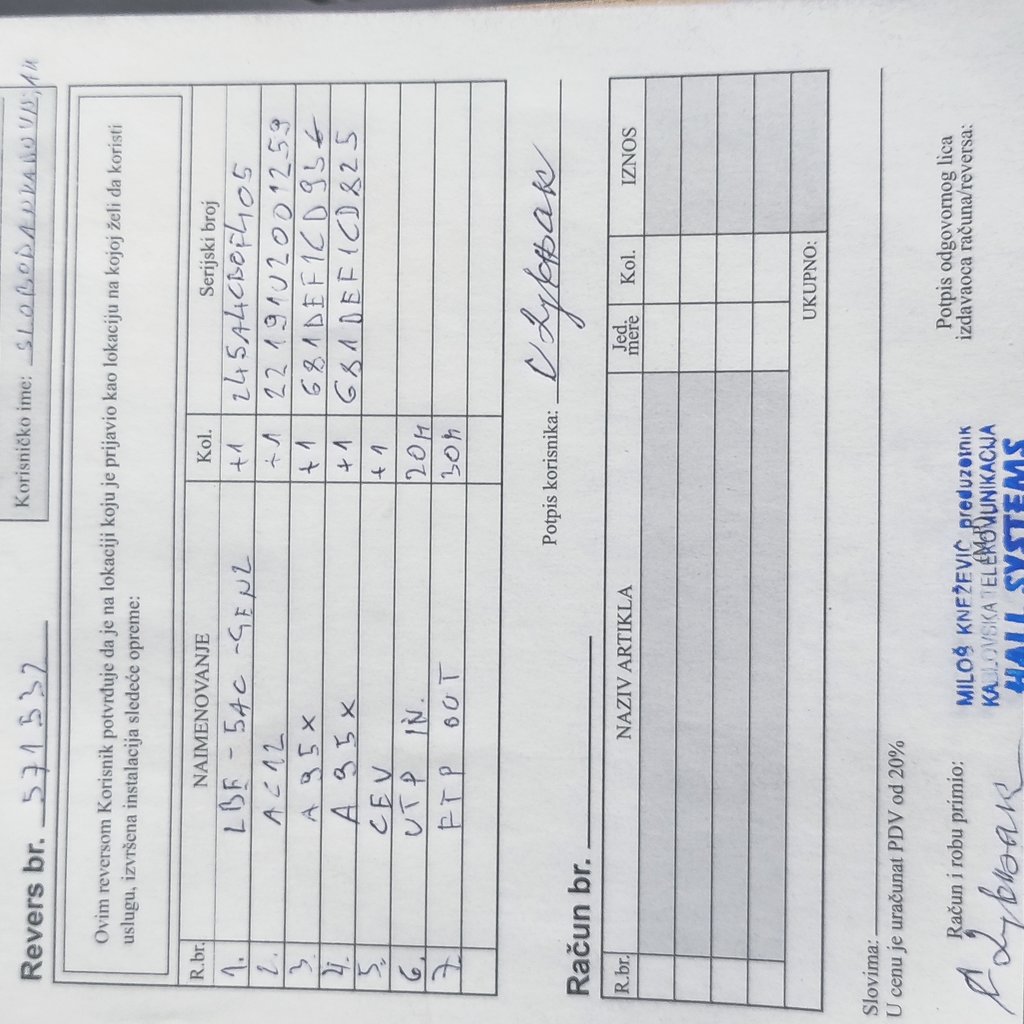 Revers br. 571332
Korisničko ime:
Ovim reversom Korisnik potvrđuje da je na lokaciji koju je prijavio kao lokaciju na kojoj želi da koristi
uslugu, izvršena instalacija sledeće opreme:
R.br. NAIMENOVANJE Kol. Serijski broj
1. LBE - 5AC - GEN2 +1 245A4CB0F405
2. AC12 +1 22191U2001259
3. A95X +1 681DEF1CD956
4. A95X +1 681DEF1CD825
5. CEV +1
6. UTP IN. 20M
7. FTP OUT 30M
Potpis korisnika:
Račun br.
R.br. NAZIV ARTIKLA Jed. mere Kol. IZNOS
UKUPNO:
Slovima:
U cenu je uračunat PDV od 20%
Račun i robu primio:
Potpis odgovornog lica
izdavaoca računa/reversa:
MILOŠ KNEŽEVIĆ preduzetnik
KABLOVSKA TELEKOMUNIKACIJA
HALL SYSTEMS